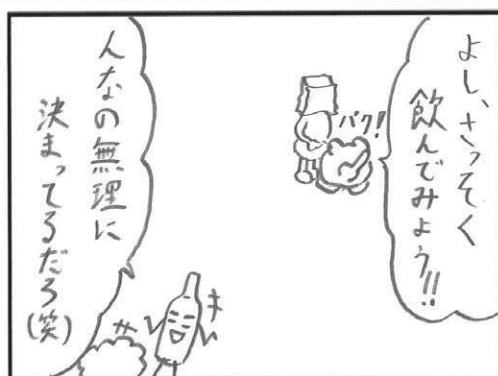 よし、さっそく
飲んでみよう!!
パク!
んなの無理に
決まってるだろ
(笑)